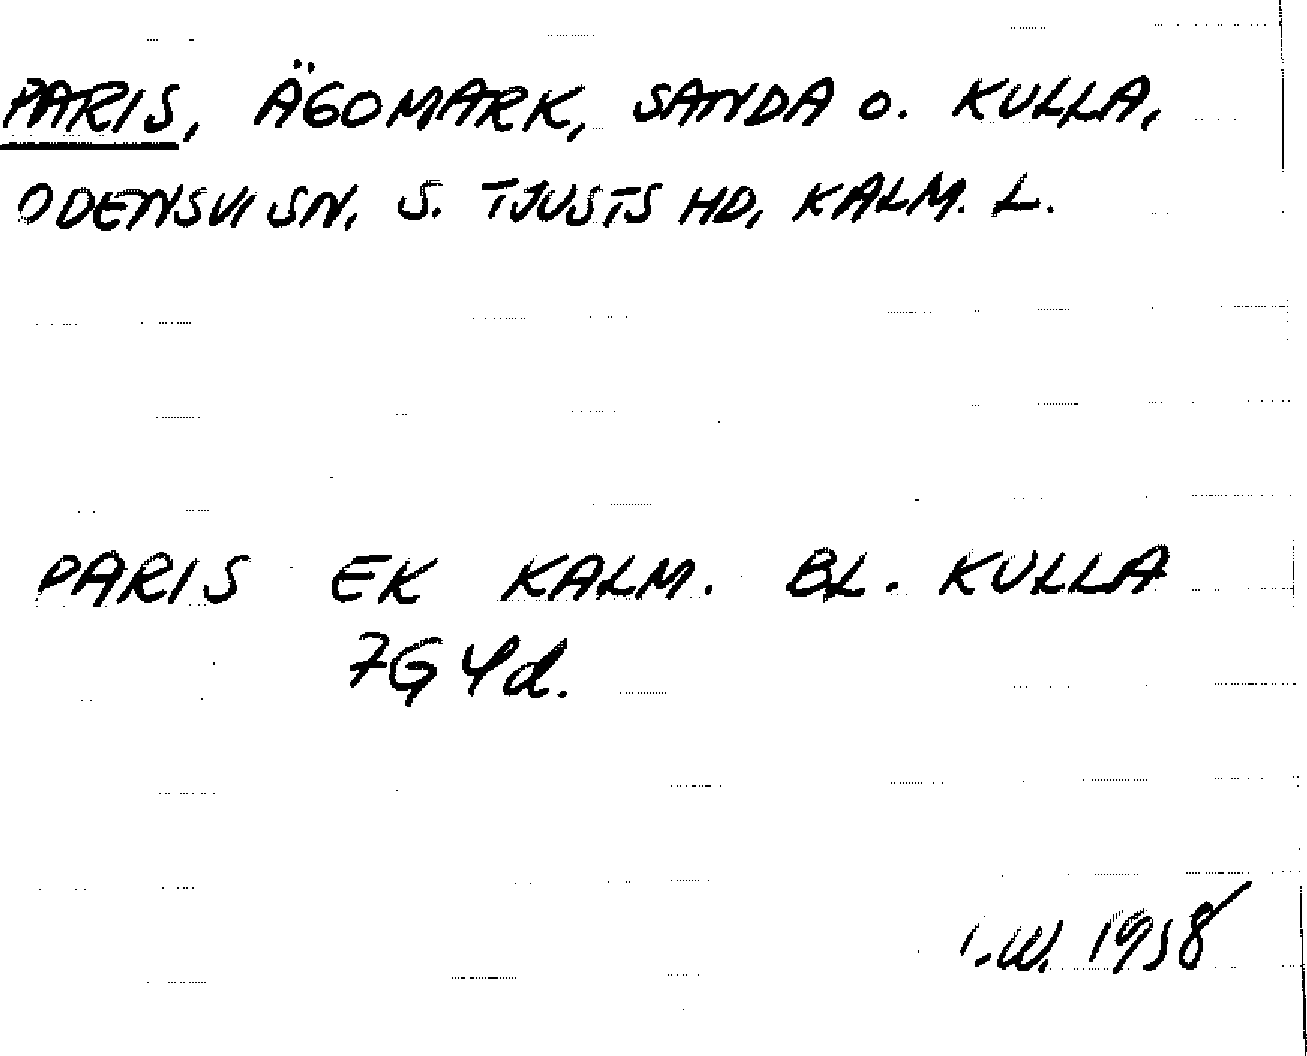 PARIS, ÄGOMARK, SANDA O. KULLA,
ODENSVI SN, S. TJUSTS HD, KALM. L.
PARIS EK KALM. BL. KULLA
7G4d.
I.W. 1958